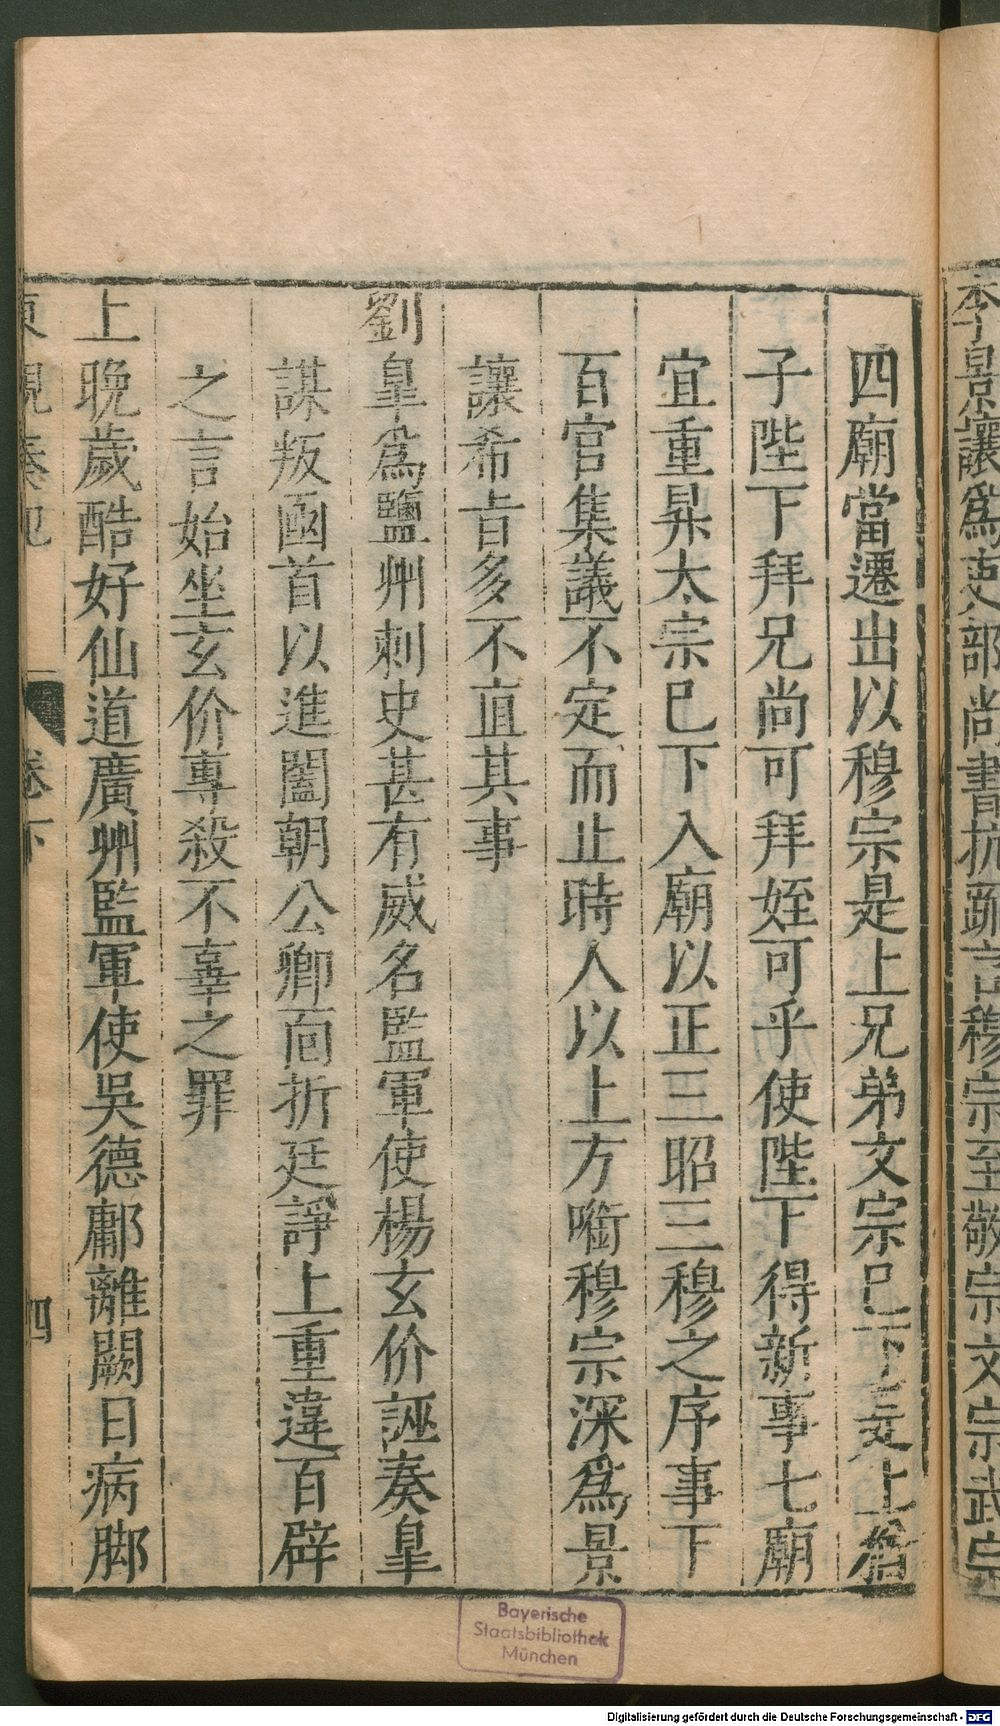 李景讓爲吏部尚書抗疏言穆宗至敬宗文宗武宗
四廟當遷出以穆宗是上兄弟文宗已下是上猶
子陛下拜兄尚可拜姪可乎使陛下得新事七廟
宜重昇太宗已下入廟以正三昭三穆之序事下
百官集議不定而止時人以上方啣穆宗深爲景
讓希旨多不直其事
劉皐爲鹽州刺史甚有威名監軍使楊玄价誣奏皐
謀叛函首以進闔朝公卿面折廷諍上重違百辟
之言始坐玄价專殺不辜之罪
上晚歲酷好仙道廣州監軍使吳德鄘離闕日病脚
東觀奏記 卷下 四
Bayerische
Staatsbibliothek
München
Digitalisierung gefördert durch die Deutsche Forschungsgemeinschaft - DFG